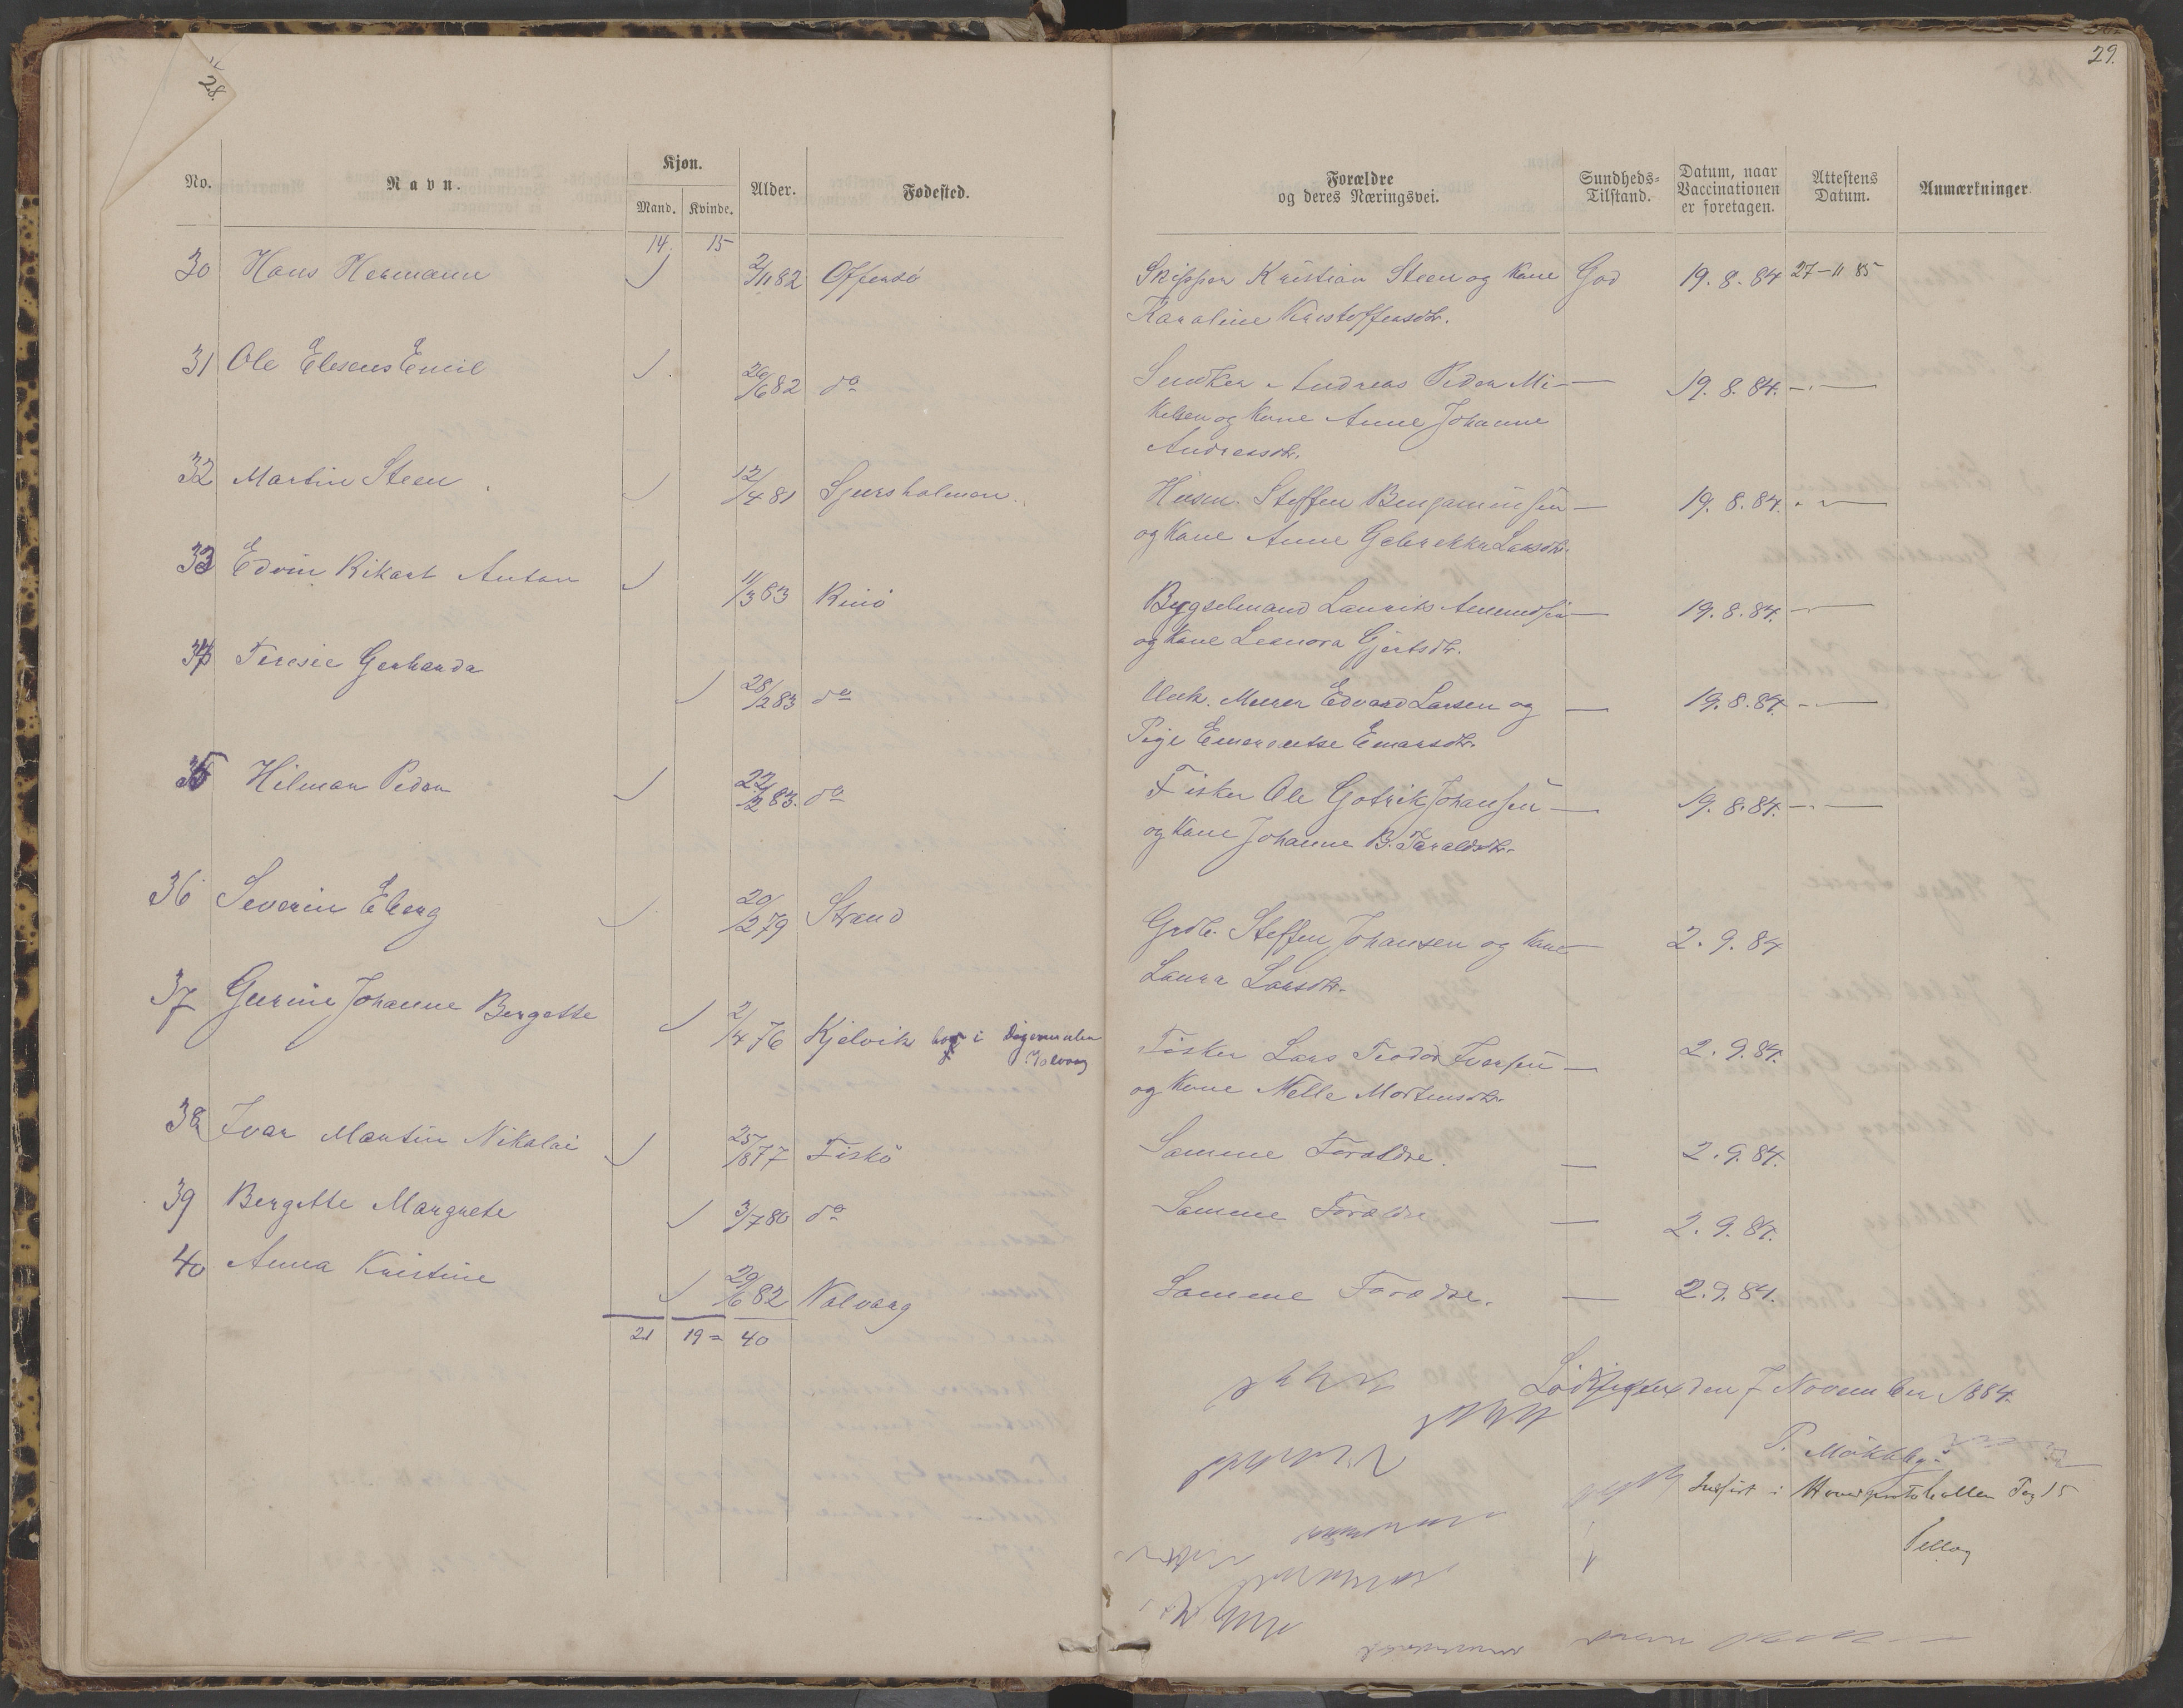 28.
29.
No. Navn. Kjøn. Mand. Kvinde. Alder. Fødested. Forældre og deres Næringsvei. Sundheds-Tilstand. Datum, naar Vaccinationen er foretagen. Attestens Datum. Anmærkninger.
14 15
30 Hans Hermann 2/11 82 Offersø Skipper Kristian Steen og Kone God 19.8.84 27-11 85
Karoline Kristoffersdtr.
31 Ole Eliseus Emil 26/6 82 do Andreas Peder Mi- — 19.8.84. —
kelsen og Kone Anne Johanne
Andreasdtr.
32 Martin Steen 12/4 81 Sjursholmen. Husm. Steffen Benjaminsen — 19.8.84. —
og Kone Anne Larsdtr.
33 Edvin Rikart Anton 11/3 83 Rinø Bygselmand Laurits Amundsen — 19.8.84. —
og Kone Leonora Gjertsdtr.
34 Teresie Gerharda 28/2 83 do Murer Edvard Larsen og — 19.8.84. —
Pige Emerentse Einarsdtr.
35 Hilmar Peder 22/2 83. do Fisker Ole Gotrik Johansen — 19.8.84. —
og Kone Johanne B. Taraldsdtr.
36 Severin Eberg 20/12 79 Strand Grdb. Steffen Johansen og Kone — 2.9.84
Laura Larsdtr.
37 Gurine Johanne Bergette 2/4 76 Kjelvik bor i Digermulen Fisker Lars Teodor Iversen — 2.9.84.
og Kone Melle Mortensdtr.
38 Ivar Martin Nikolai 25/8 77 Fiskø Samme Forældre. — 2.9.84.
39 Bergitte Margrete 3/7 80 do Samme Forældre — 2.9.84.
40 Anna Kristine 29/6 82 Nalvaag Samme Forældre. — 2.9.84.
21 19 = 40
Lødingen den 7 November 1884.
P. Møkkelby.
Indført i Hovedprotokollen Pag 15